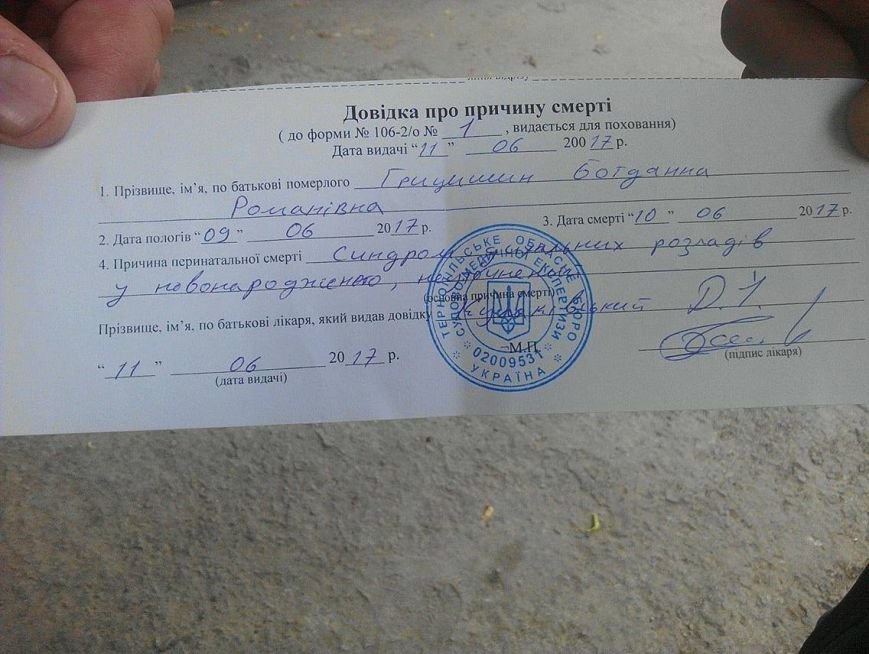 Довідка про причину смерті
( до форми № 106-2/о № 1 , видається для поховання)
Дата видачі “11” 06 20017 р.
1. Прізвище, ім’я, по батькові померлого Грицишин Богданна
Романівна
2. Дата пологів “09” 06 2017 р.
3. Дата смерті “10” 06 2017 р.
4. Причина перинатальної смерті Синдром розладів
у новонародженого,
(основна причина смерті)
Прізвище, ім’я, по батькові лікаря, який видав довідку Д. І.
М.П.
(підпис лікаря)
“11” 06 2017 р.
(дата видачі)
ТЕРНОПІЛЬСЬКЕ ОБЛАСНЕ БЮРО
СУДОВОМЕДИЧНОЇ ЕКСПЕРТИЗИ
* 02009531 *
* УКРАЇНА *